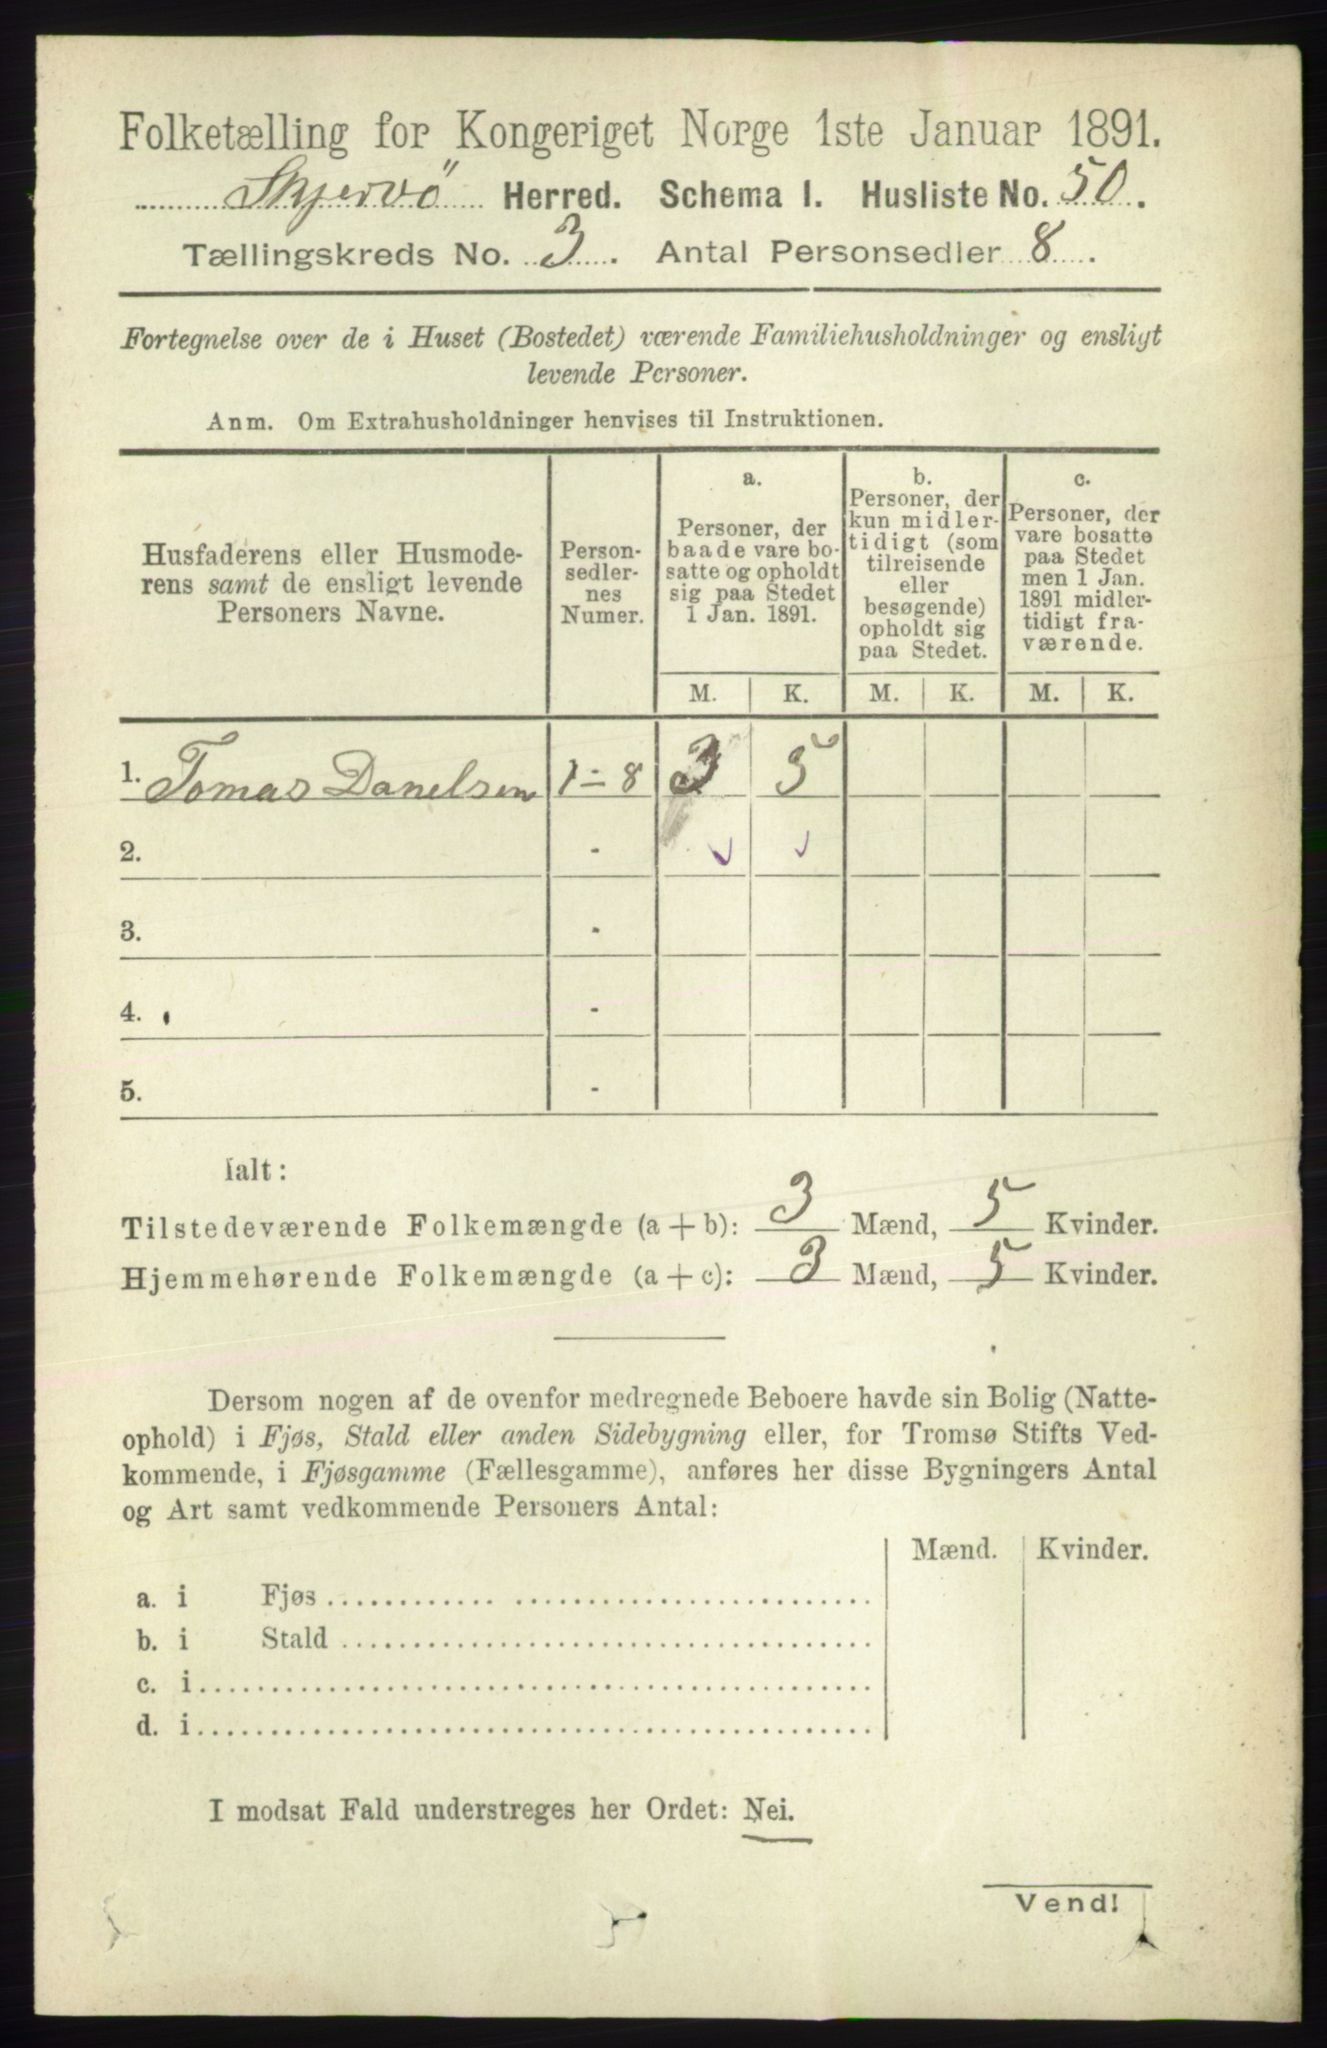 Folketælling for Kongeriget Norge 1ste Januar 1891.
Skjervö Herred. Schema I. Husliste No. 50.
Tællingskreds No. 3. Antal Personsedler 8.
Fortegnelse over de i Huset (Bostedet) værende Familiehusholdninger og ensligt
levende Personer.
Anm. Om Extrahusholdninger henvises til Instruktionen.
Husfaderens eller Husmode-
rens samt de ensligt levende
Personers Navne.
Person-
sedler-
nes
Numer.
a.
Personer, der
baade vare bo-
satte og opholdt
sig paa Stedet
1 Jan. 1891.
b.
Personer, der
kun midler-
tidigt (som
tilreisende
eller
besøgende)
opholdt sig
paa Stedet.
c.
Personer, der
vare bosatte
paa Stedet
men 1 Jan.
1891 midler-
tidigt fra-
værende.
M. K. M. K. M. K.
1. Tomas Danelsen 1 - 8 3 5
2. -
3. -
4. -
5. -
Ialt:
Tilstedeværende Folkemængde (a + b): 3 Mænd, 5 Kvinder.
Hjemmehørende Folkemængde (a + c): 3 Mænd, 5 Kvinder.
Dersom nogen af de ovenfor medregnede Beboere havde sin Bolig (Natte-
ophold) i Fjøs, Stald eller anden Sidebygning eller, for Tromsø Stifts Ved-
kommende, i Fjøsgamme (Fællesgamme), anføres her disse Bygningers Antal
og Art samt vedkommende Personers Antal:
Mænd. Kvinder.
a. i Fjøs
b. i Stald
c. i
d. i
I modsat Fald understreges her Ordet: Nei.
Vend!